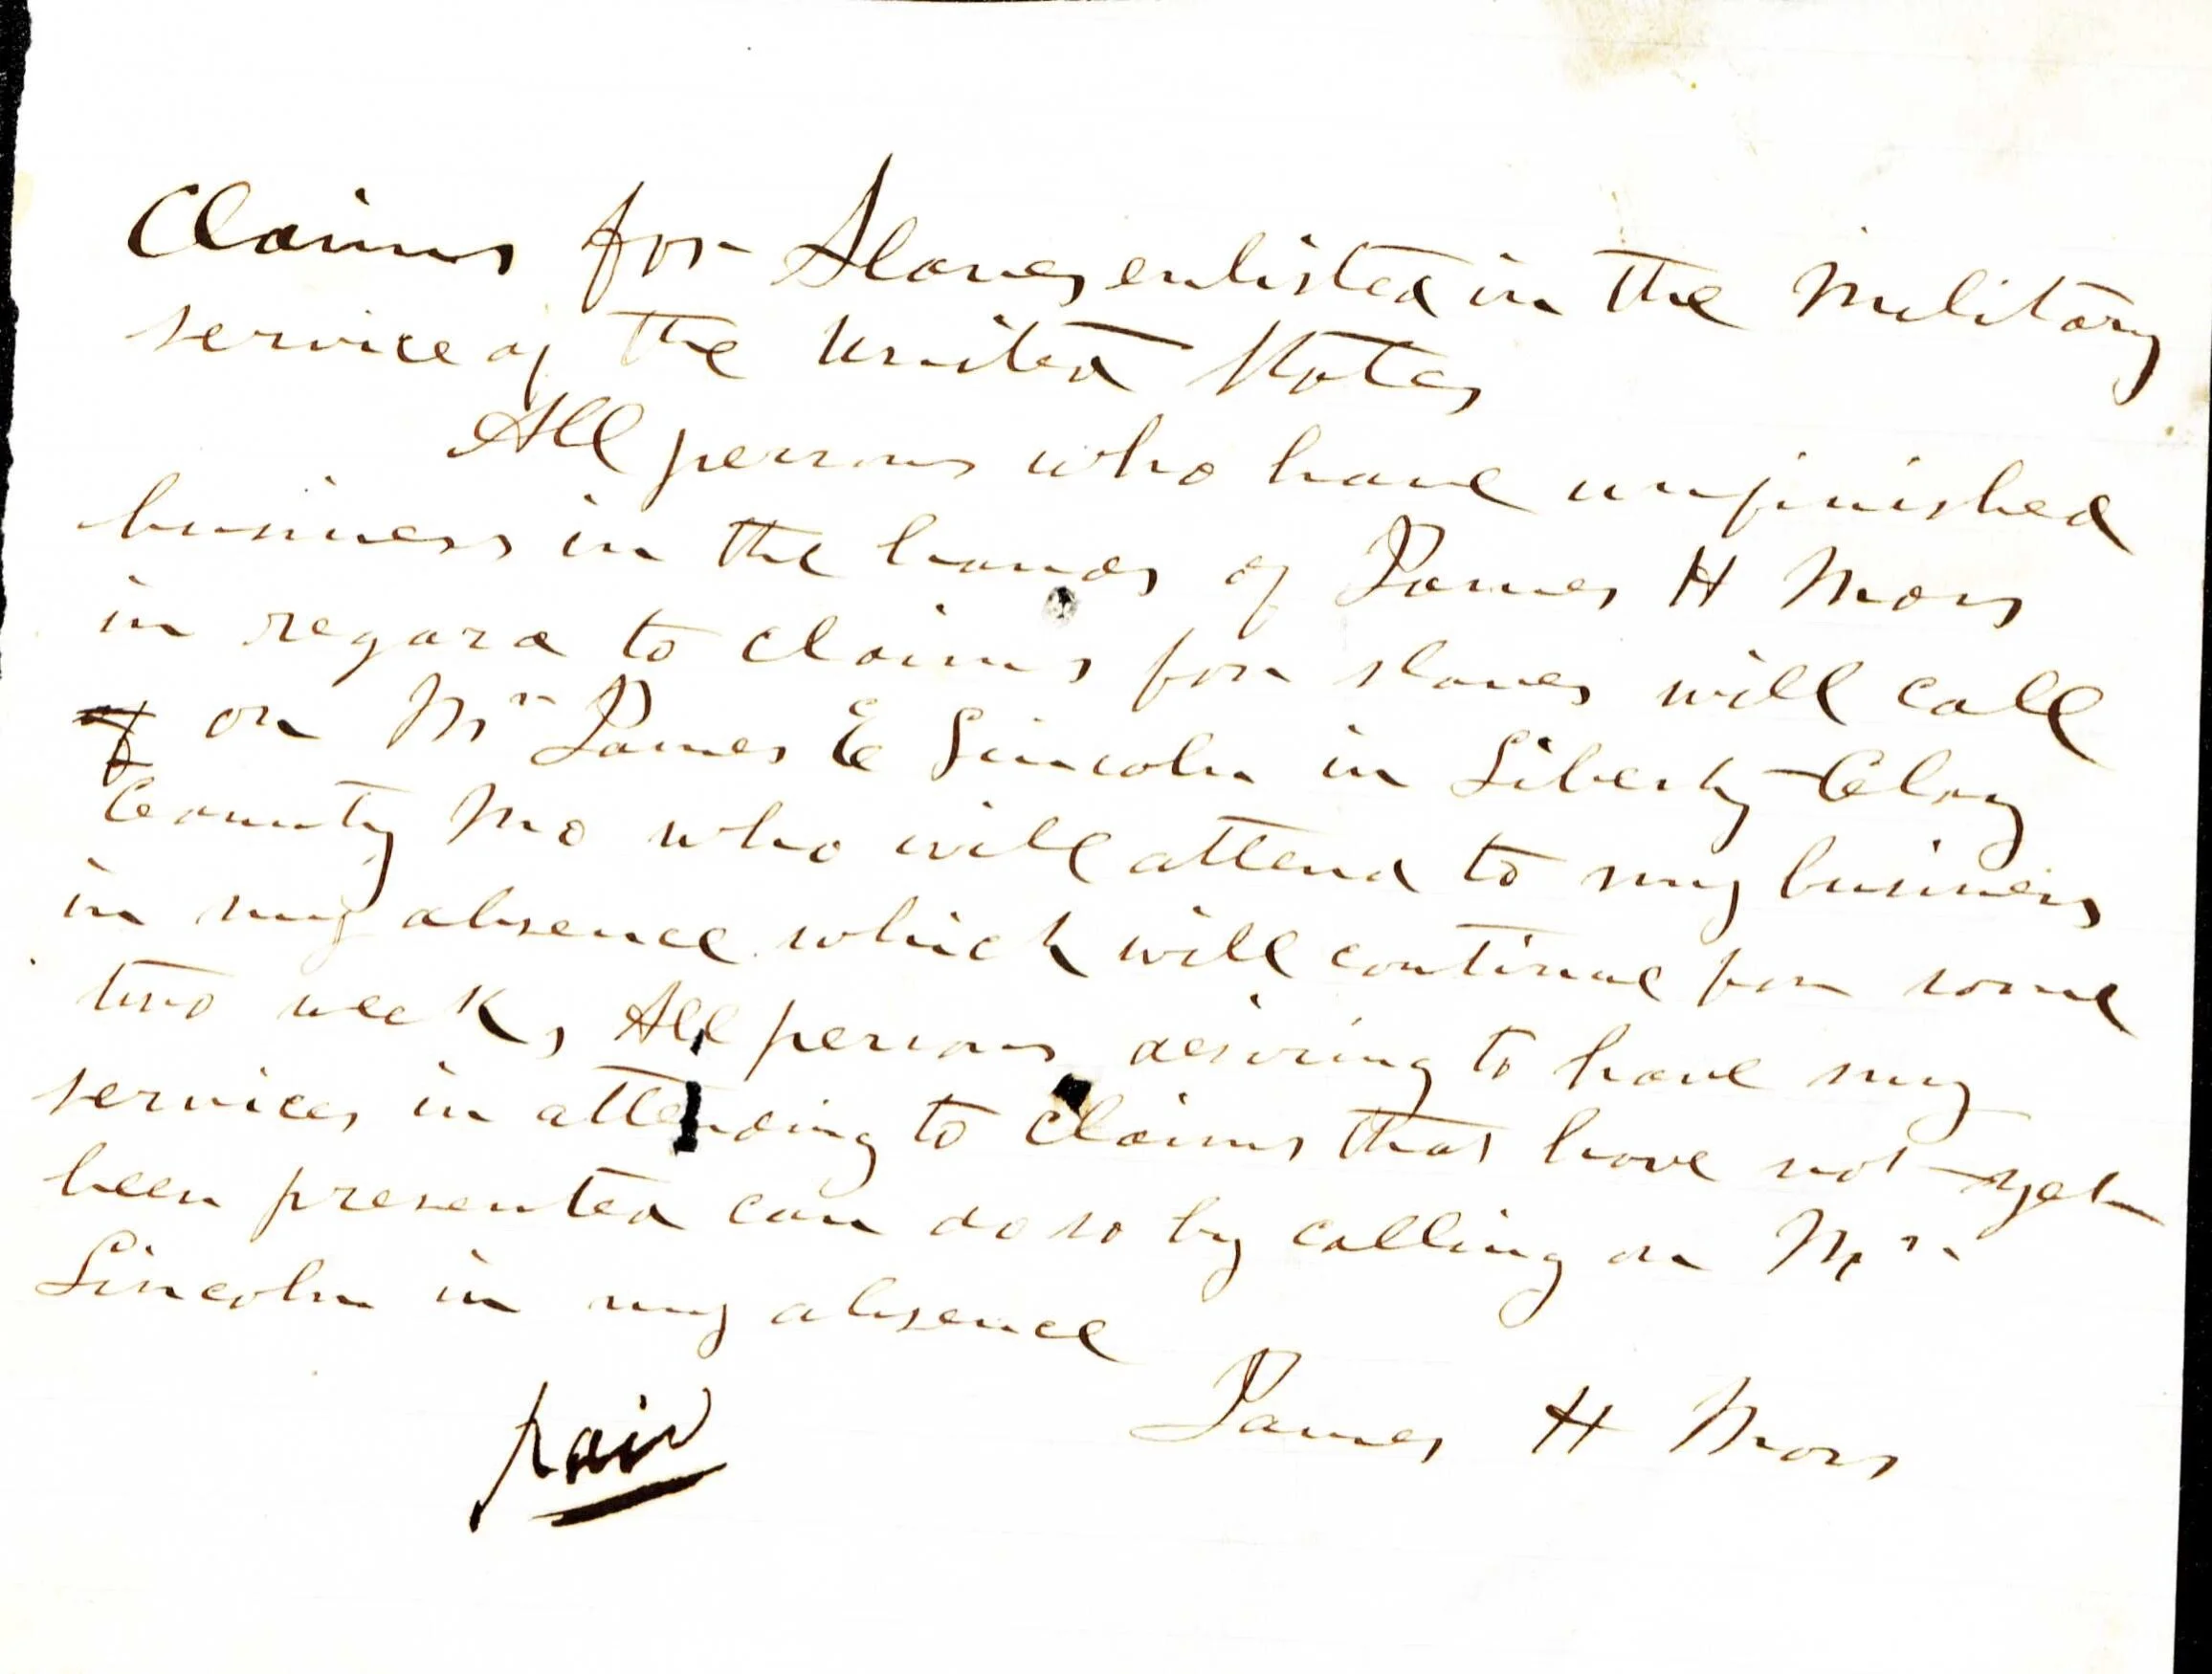 Claims for Slaves enlisted in the Military
service of the United States
All persons who have unfinished
business in the hands of James H Moss
in regard to claims for slaves will call
on Mr James E Lincoln in Liberty Clay
County Mo who will attend to my business
in my absence which will continue for some
two weeks, All persons desiring to have my
services in attending to Claims that have not yet
been presented can do so by calling on Mr
Lincoln in my absence
James H Moss
paid